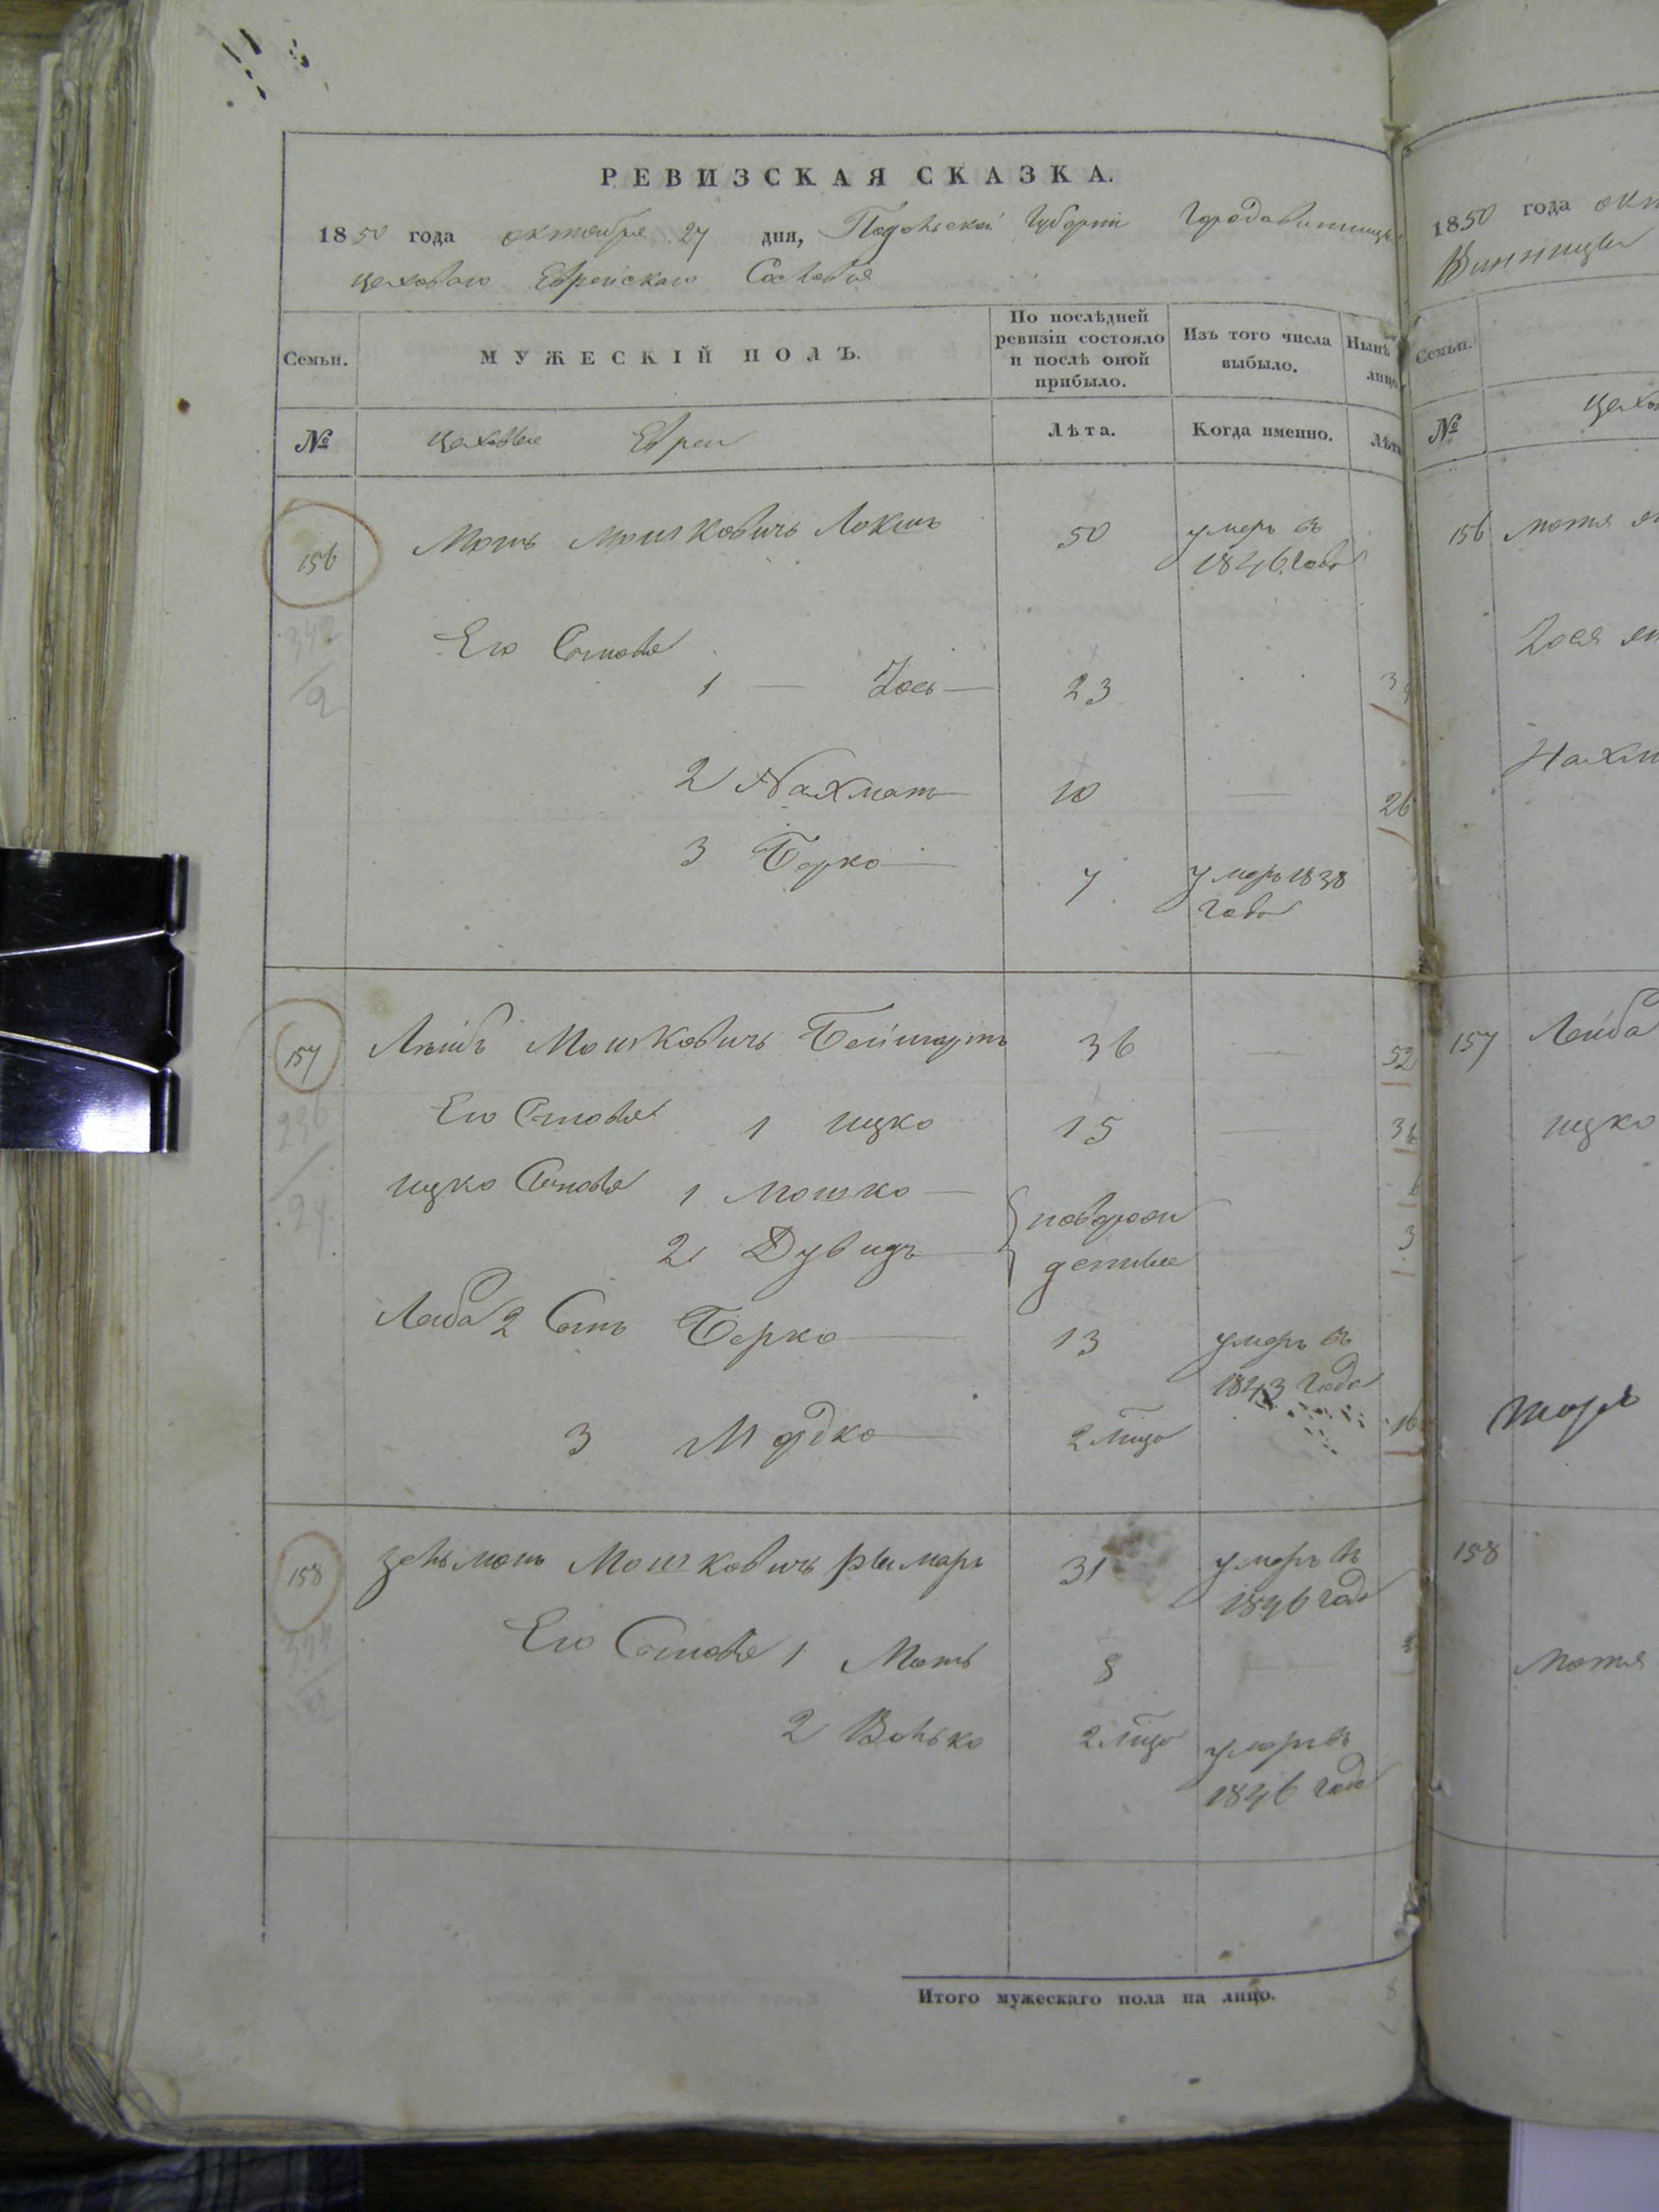 РЕВИЗСКАЯ СКАЗКА.
1850 года октября 27 дня, Подольской Губерніи Города Винницы
цеховаго Еврейскаго Сословія
Семьи.
МУЖЕСКІЙ ПОЛЪ.
По послѣдней ревизіи состояло и послѣ оной прибыло.
Изъ того числа выбыло.
Нынѣ лицо
№
цеховые Евреи
Лѣта.
Когда именно.
Лѣта
156 Мошковичъ Локшъ 50 умеръ въ
1846 года
Его Сыновья
1 — Зось — 23
342
2
2 Нахманъ — 10 — 26
3 Берко — 7 умеръ 1838
года
157 Лейбъ Мошковичъ 36 — 52
Его Сыновья 1 Ицко 15 — 31
Ицко Сыновья 1 Мошко — новорож 6
2 Дувидъ — денные 3
Лейба 2 Сынъ Берко — 13 умеръ въ
1843 года
3 Мордко — 2 16
158 Зельманъ Мошковичъ Рымаръ 31 умеръ въ
1846 года
Его Сыновья 1 Моть 8 —
2 Волько 2 умеръ въ
1846 года
Итого мужескаго пола на лицо.
1850 года окт
Винницы
Семьи.
№ цехо
156 Мотя
Зося
Нахм
157 Лейба
Ицко
158
Мотя